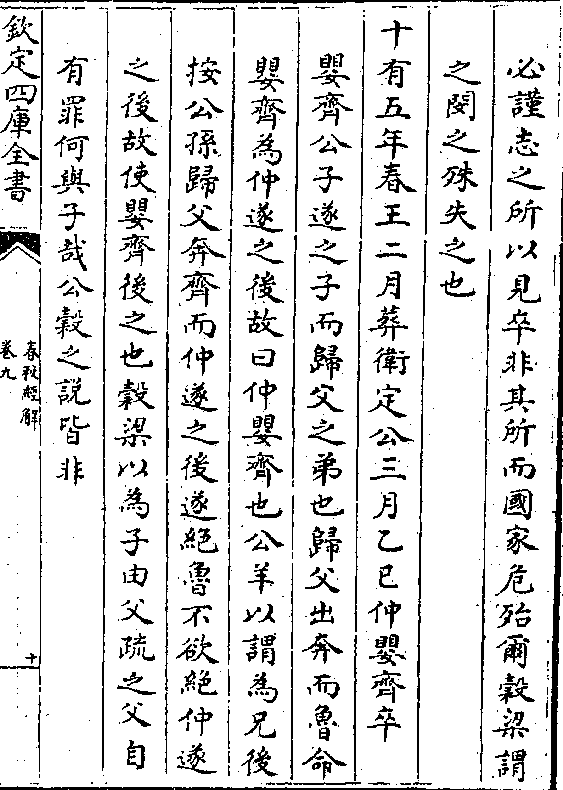 必謹志之所以見卒非其所而國家危殆爾穀梁謂
之閔之殊失之也
十有五年春王二月葬衛定公三月乙巳仲嬰齊卒
嬰齊公子遂之子而歸父之弟也歸父出奔而魯命
嬰齊為仲遂之後故曰仲嬰齊也公羊以謂為兄後
按公孫歸父奔齊而仲遂之後遂絕魯不欲絕仲遂
之後故使嬰齊後之也穀梁以為子由父疏之父自
有罪何與子哉公穀之說皆非
欽定四庫全書
春秋經解
卷九
十